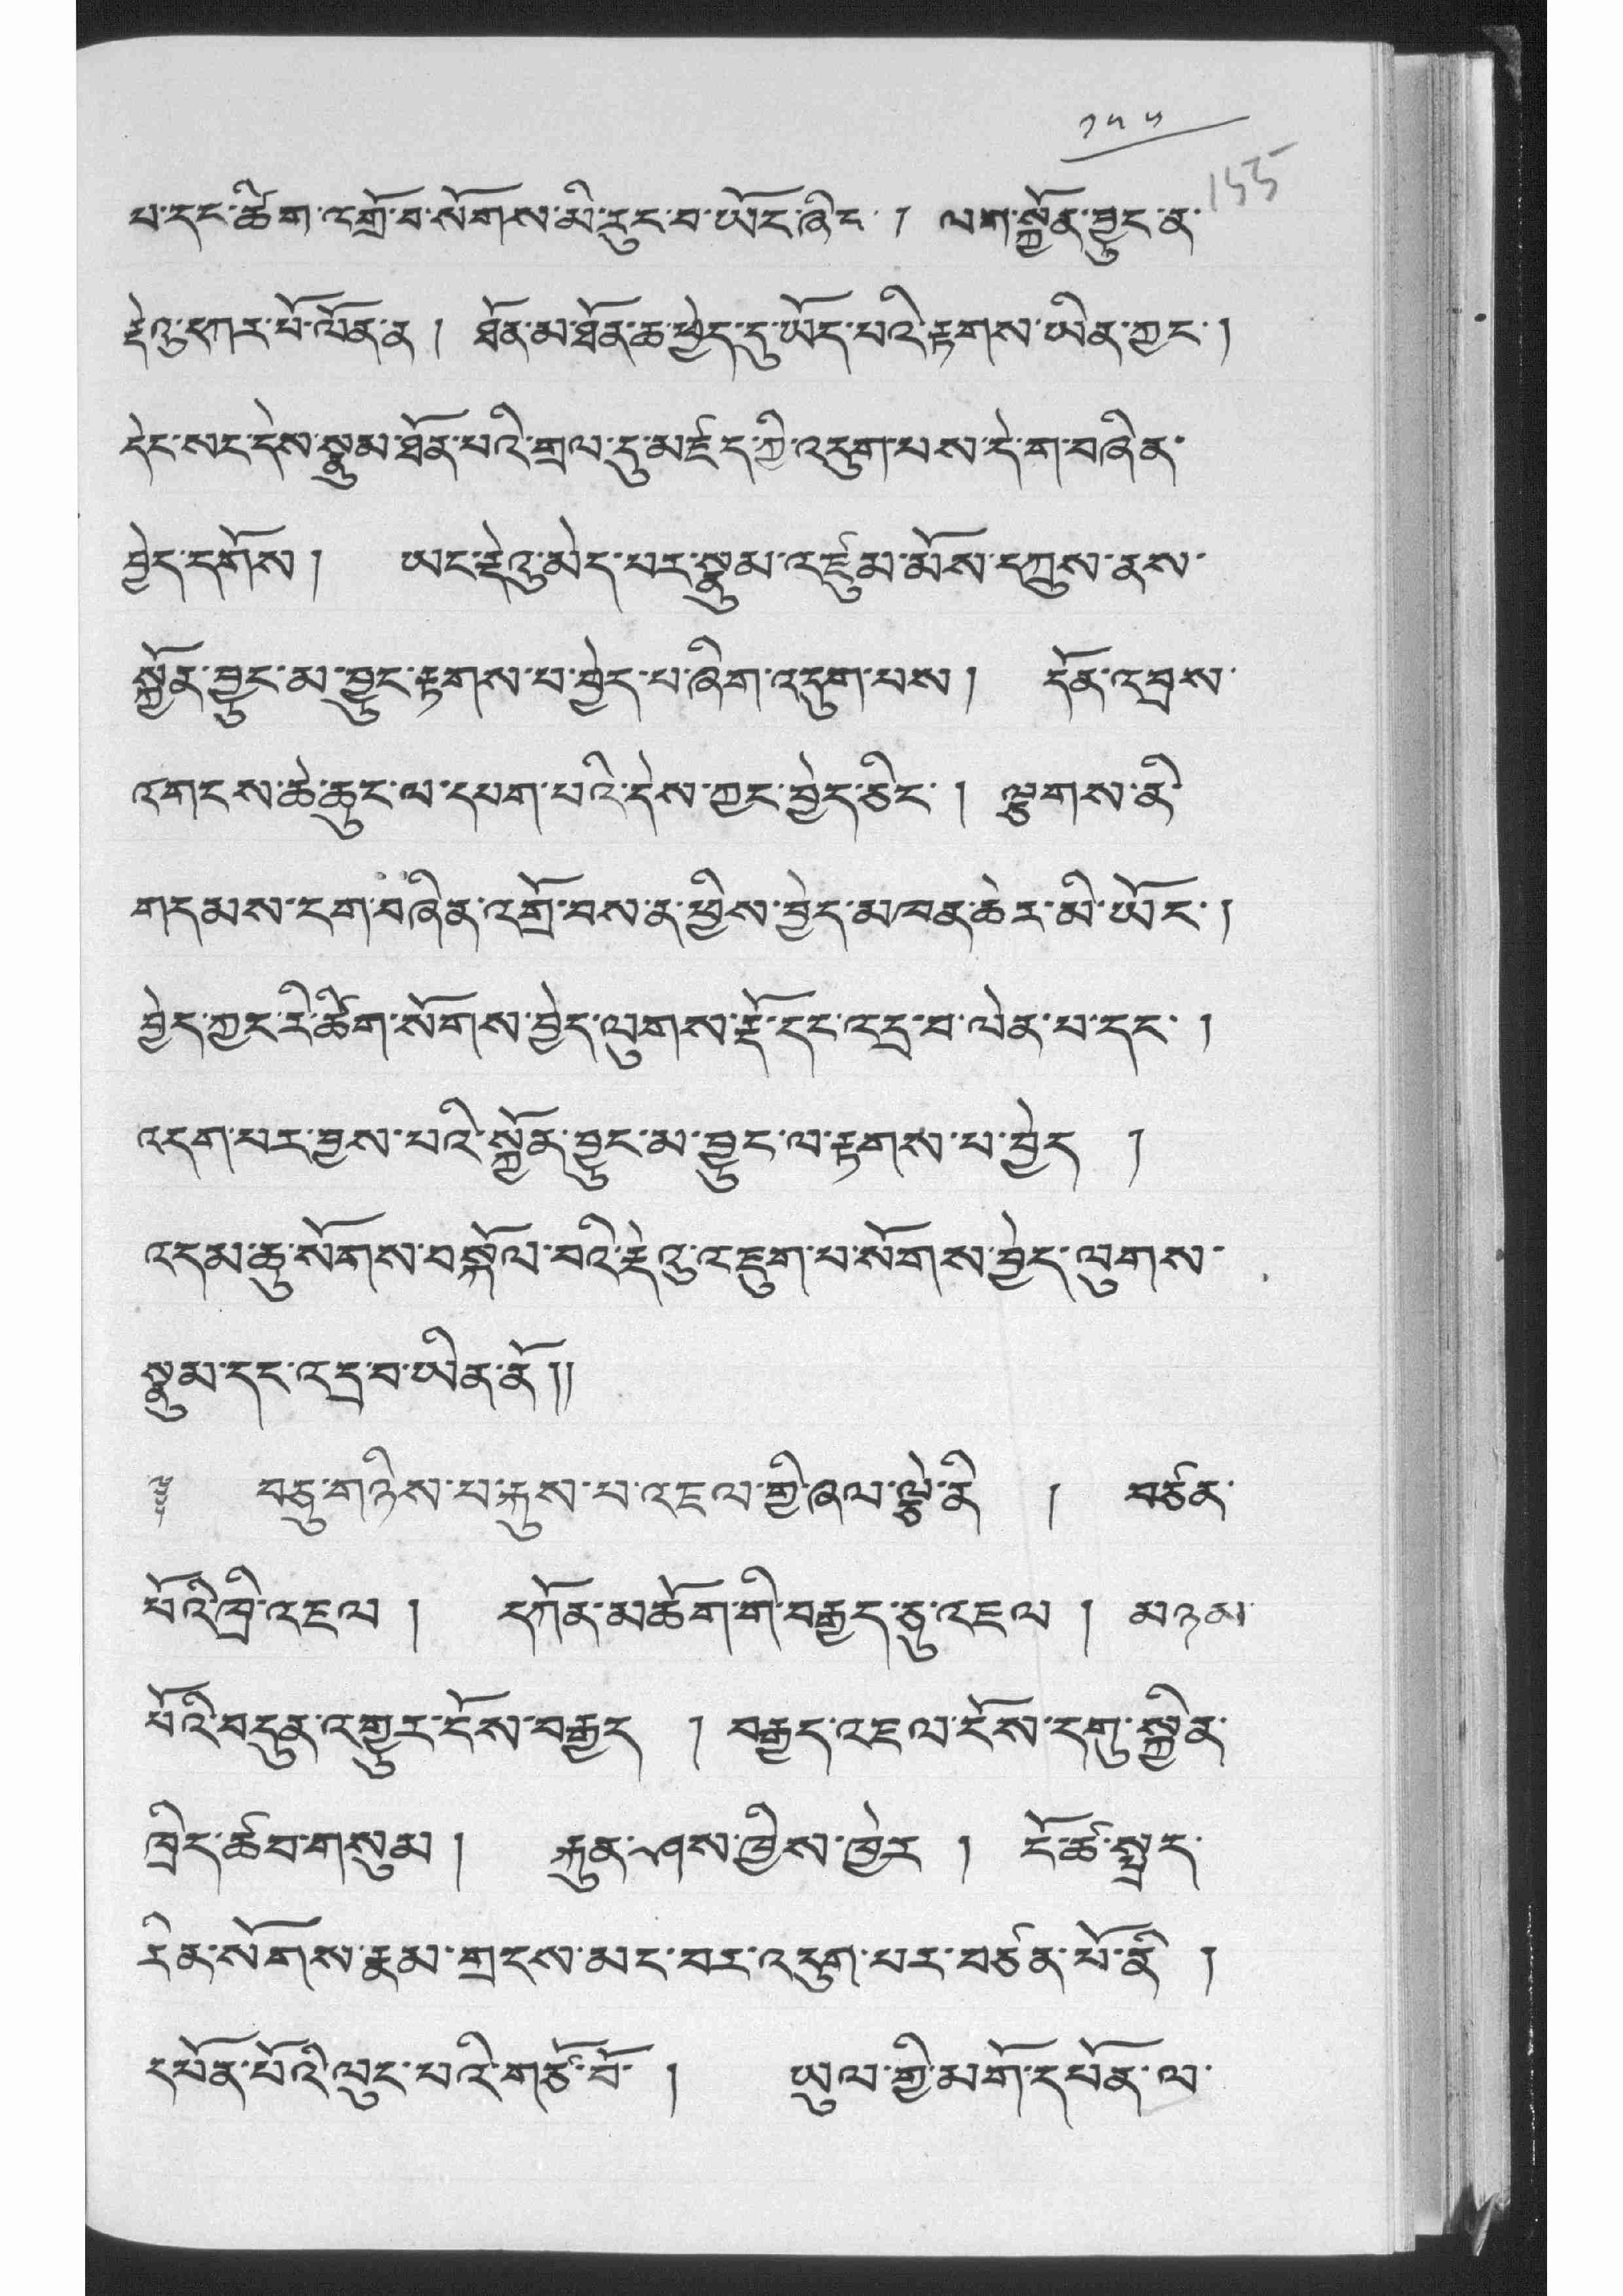 ༡༥༥
155
པ་དང་ཚིག་འགྲོ་བ་སོགས་མི་རུང་བ་ཡོང་ཞིང་ ། ལག་སྐྱོན་བྱུང་ན་
རྡེའུ་དཀར་པོ་ལོན་ན ། ཐོན་མ་ཐོན་ཆ་ཕྱེད་དུ་ཡོད་པའི་རྟགས་ཡིན་ཀྱང་ །
དེང་སང་དེས་སྣུམ་ཐོན་པའི་གྲལ་དུ་མཛད་ཀྱི་འདུག་པས་དེ་ག་བཞིན་
བྱེད་དགོས ། ཡང་རྡེའུ་མེད་པར་སྣུམ་འཛུམ་མོས་དཀྲུས་ནས་
སྐྱོན་བྱུང་མ་བྱུང་རྟགས་པ་བྱེད་པ་ཞིག་འདུག་པས ། དོན་འབྲས་
འགངས་ཆེ་ཆུང་ལ་དཔག་པའི་དེས་ཀྱང་བྱེད་ཅིང་ ། ལྕགས་ནི
གདམས་ངག་བཞིན་འགྲོ་བས་ན་ཕྱིས་བྱེད་མཁན་ཆེར་མི་ཡོང་ །
བྱེད་ཀྱང་རི་ཚིག་སོགས་བྱེད་ལུགས་རྡོ་དང་འདྲ་བ་ལེན་པ་དང་ །
འདག་པར་བྱས་པའི་སྐྱོན་བྱུང་མ་བྱུང་ལ་རྟགས་པ་བྱེད །
འདམ་ཆུ་སོགས་བསྐོལ་བའི་རྡེའུ་འཇུག་པ་སོགས་བྱེད་ལུགས་
སྣུམ་དང་འདྲ་བ་ཡིན་ནོ །།
༈ བཅུ་གཉིས་པ་རྐུས་པ་འཇལ་གྱི་ཞལ་ལྕེ་ནི ། བཙན་
པོའི་ཁྲི་འཇལ ། དཀོན་མཆོག་གི་བརྒྱད་ཅུ་འཇལ ། མཉམ་
པོའི་བདུན་འགྱུར་ངོས་བརྒྱད ། བརྒྱད་འཇལ་ངོས་དགུ་སྐྱིན་
ཁྲིད་ཚབ་གསུམ ། རྐུན་ཤས་ཁྱིས་ཁྱེར ། ངོ་ཚ་སྤྲད་
རིན་སོགས་རྣམ་གྲངས་མང་བར་འདུག་པར་བཙན་པོ་ནི །
དཔོན་པོའི་ལུང་པའི་གཙོ་བོ་ ། ཡུལ་གྱི་མགོ་དཔོན་ལ་